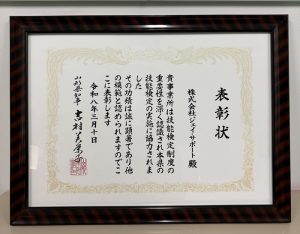 表彰状
株式会社ジェイサポート 殿
貴事業所は技能検定制度の
重要性を深く認識され本県の
技能検定の実施に協力されま
した
その功績は誠に顕著であり他
の模範と認められますのでこ
こに表彰します
令和八年三月十日
山形県知事 吉村美栄子